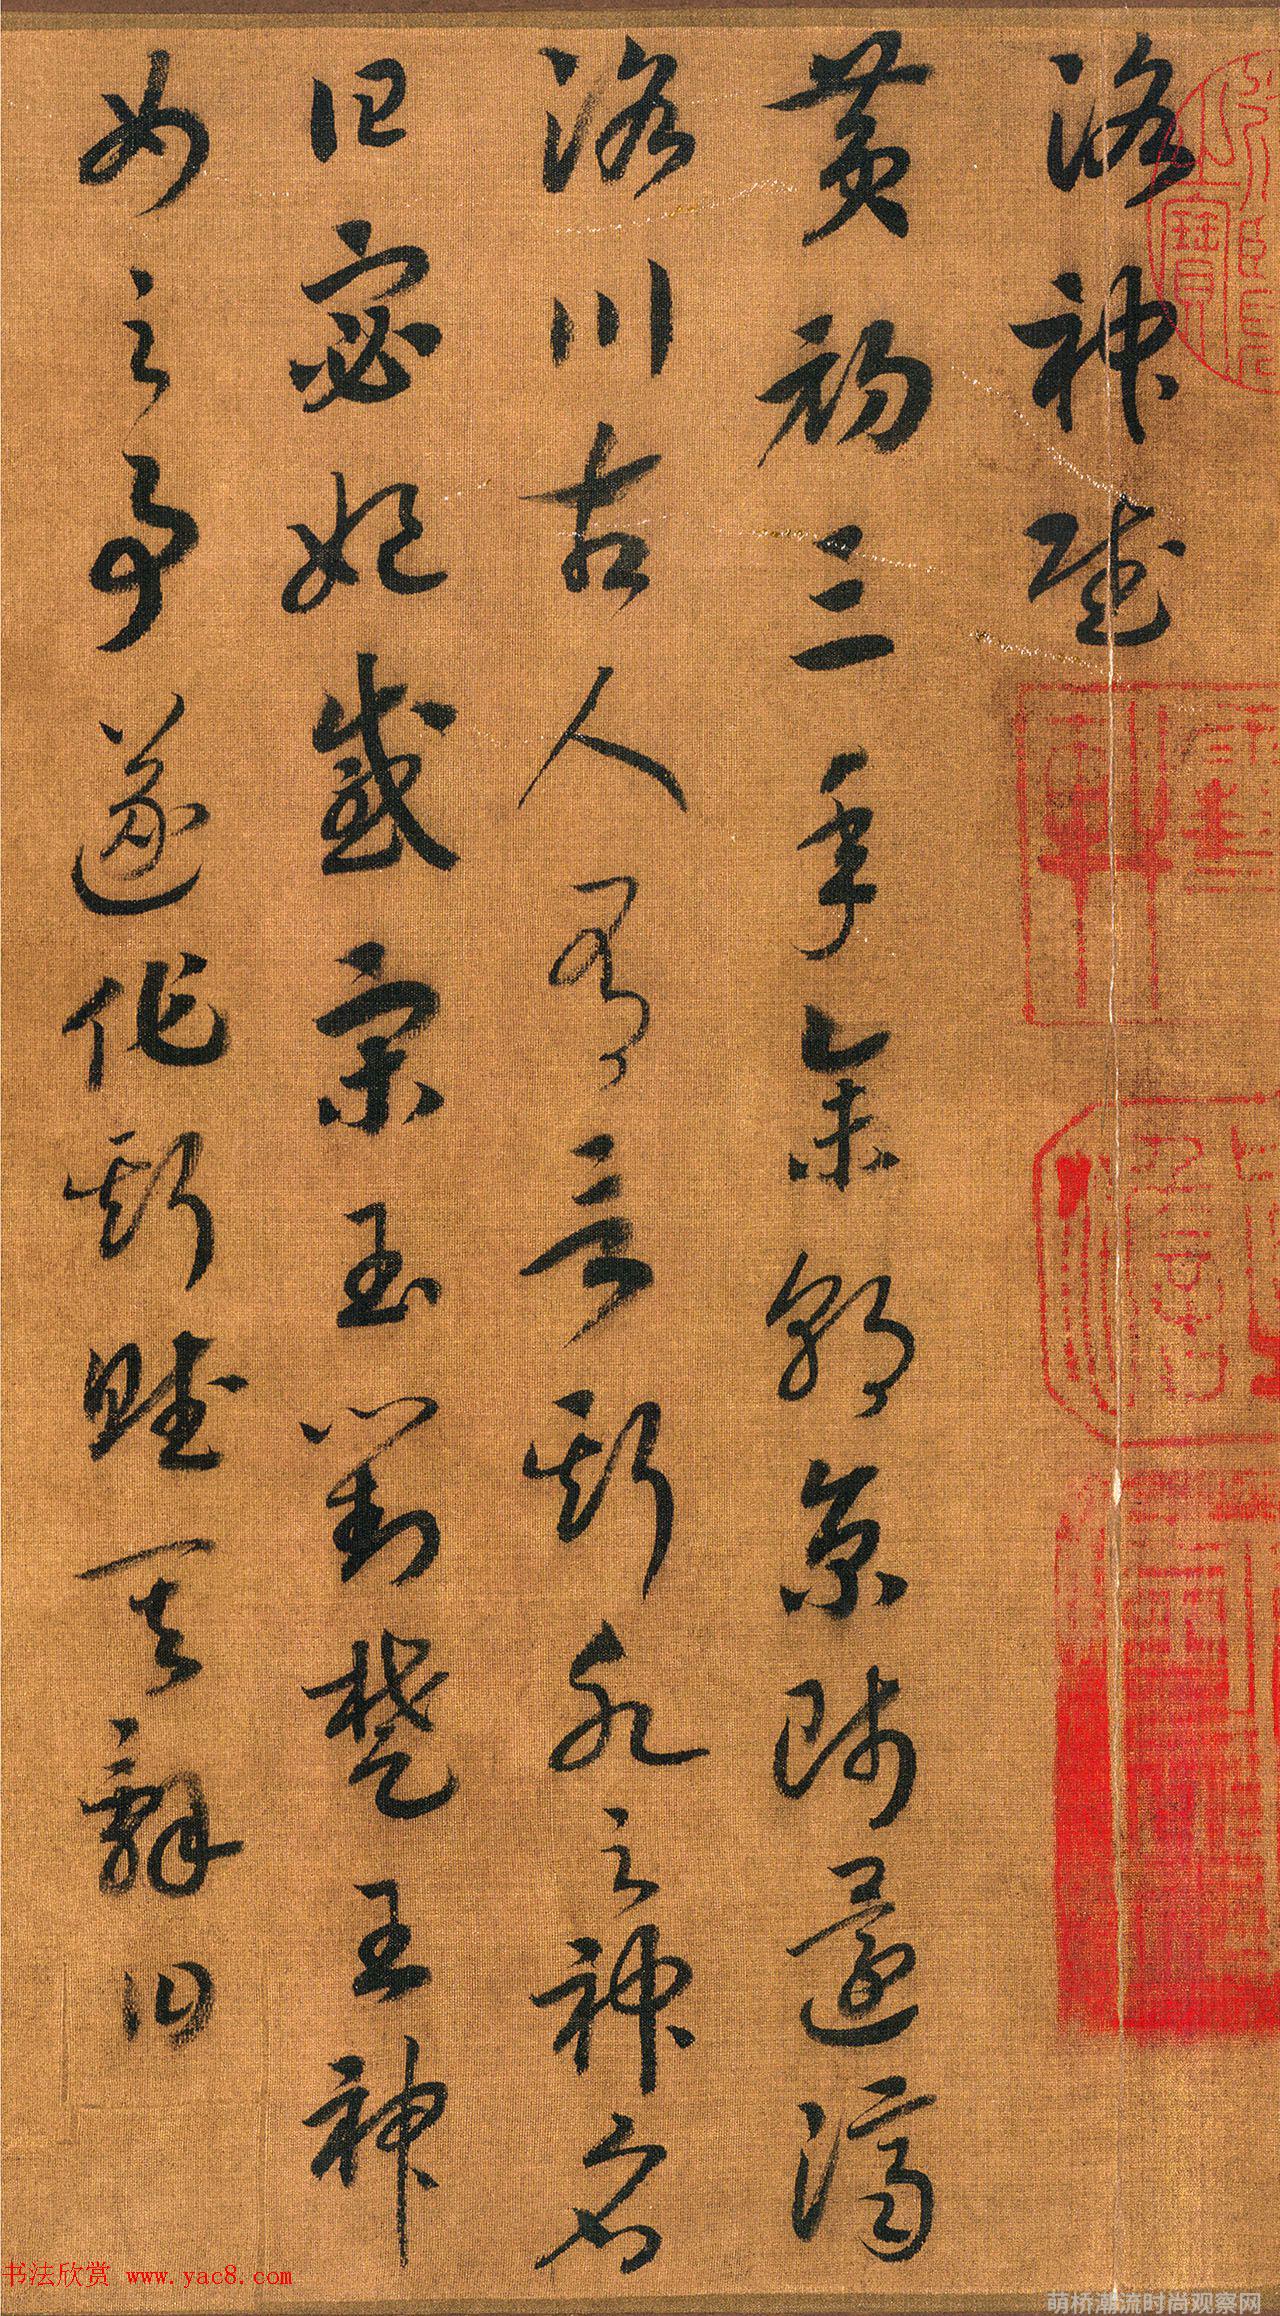 洛神賦
黄初三年余朝京師還濟
洛川古人有言斯水之神名
曰宓妃感宋玉對楚王神
女之事遂作斯賦其辭曰
书法欣赏 www.yac8.com
萌桥潮流时尚观察网